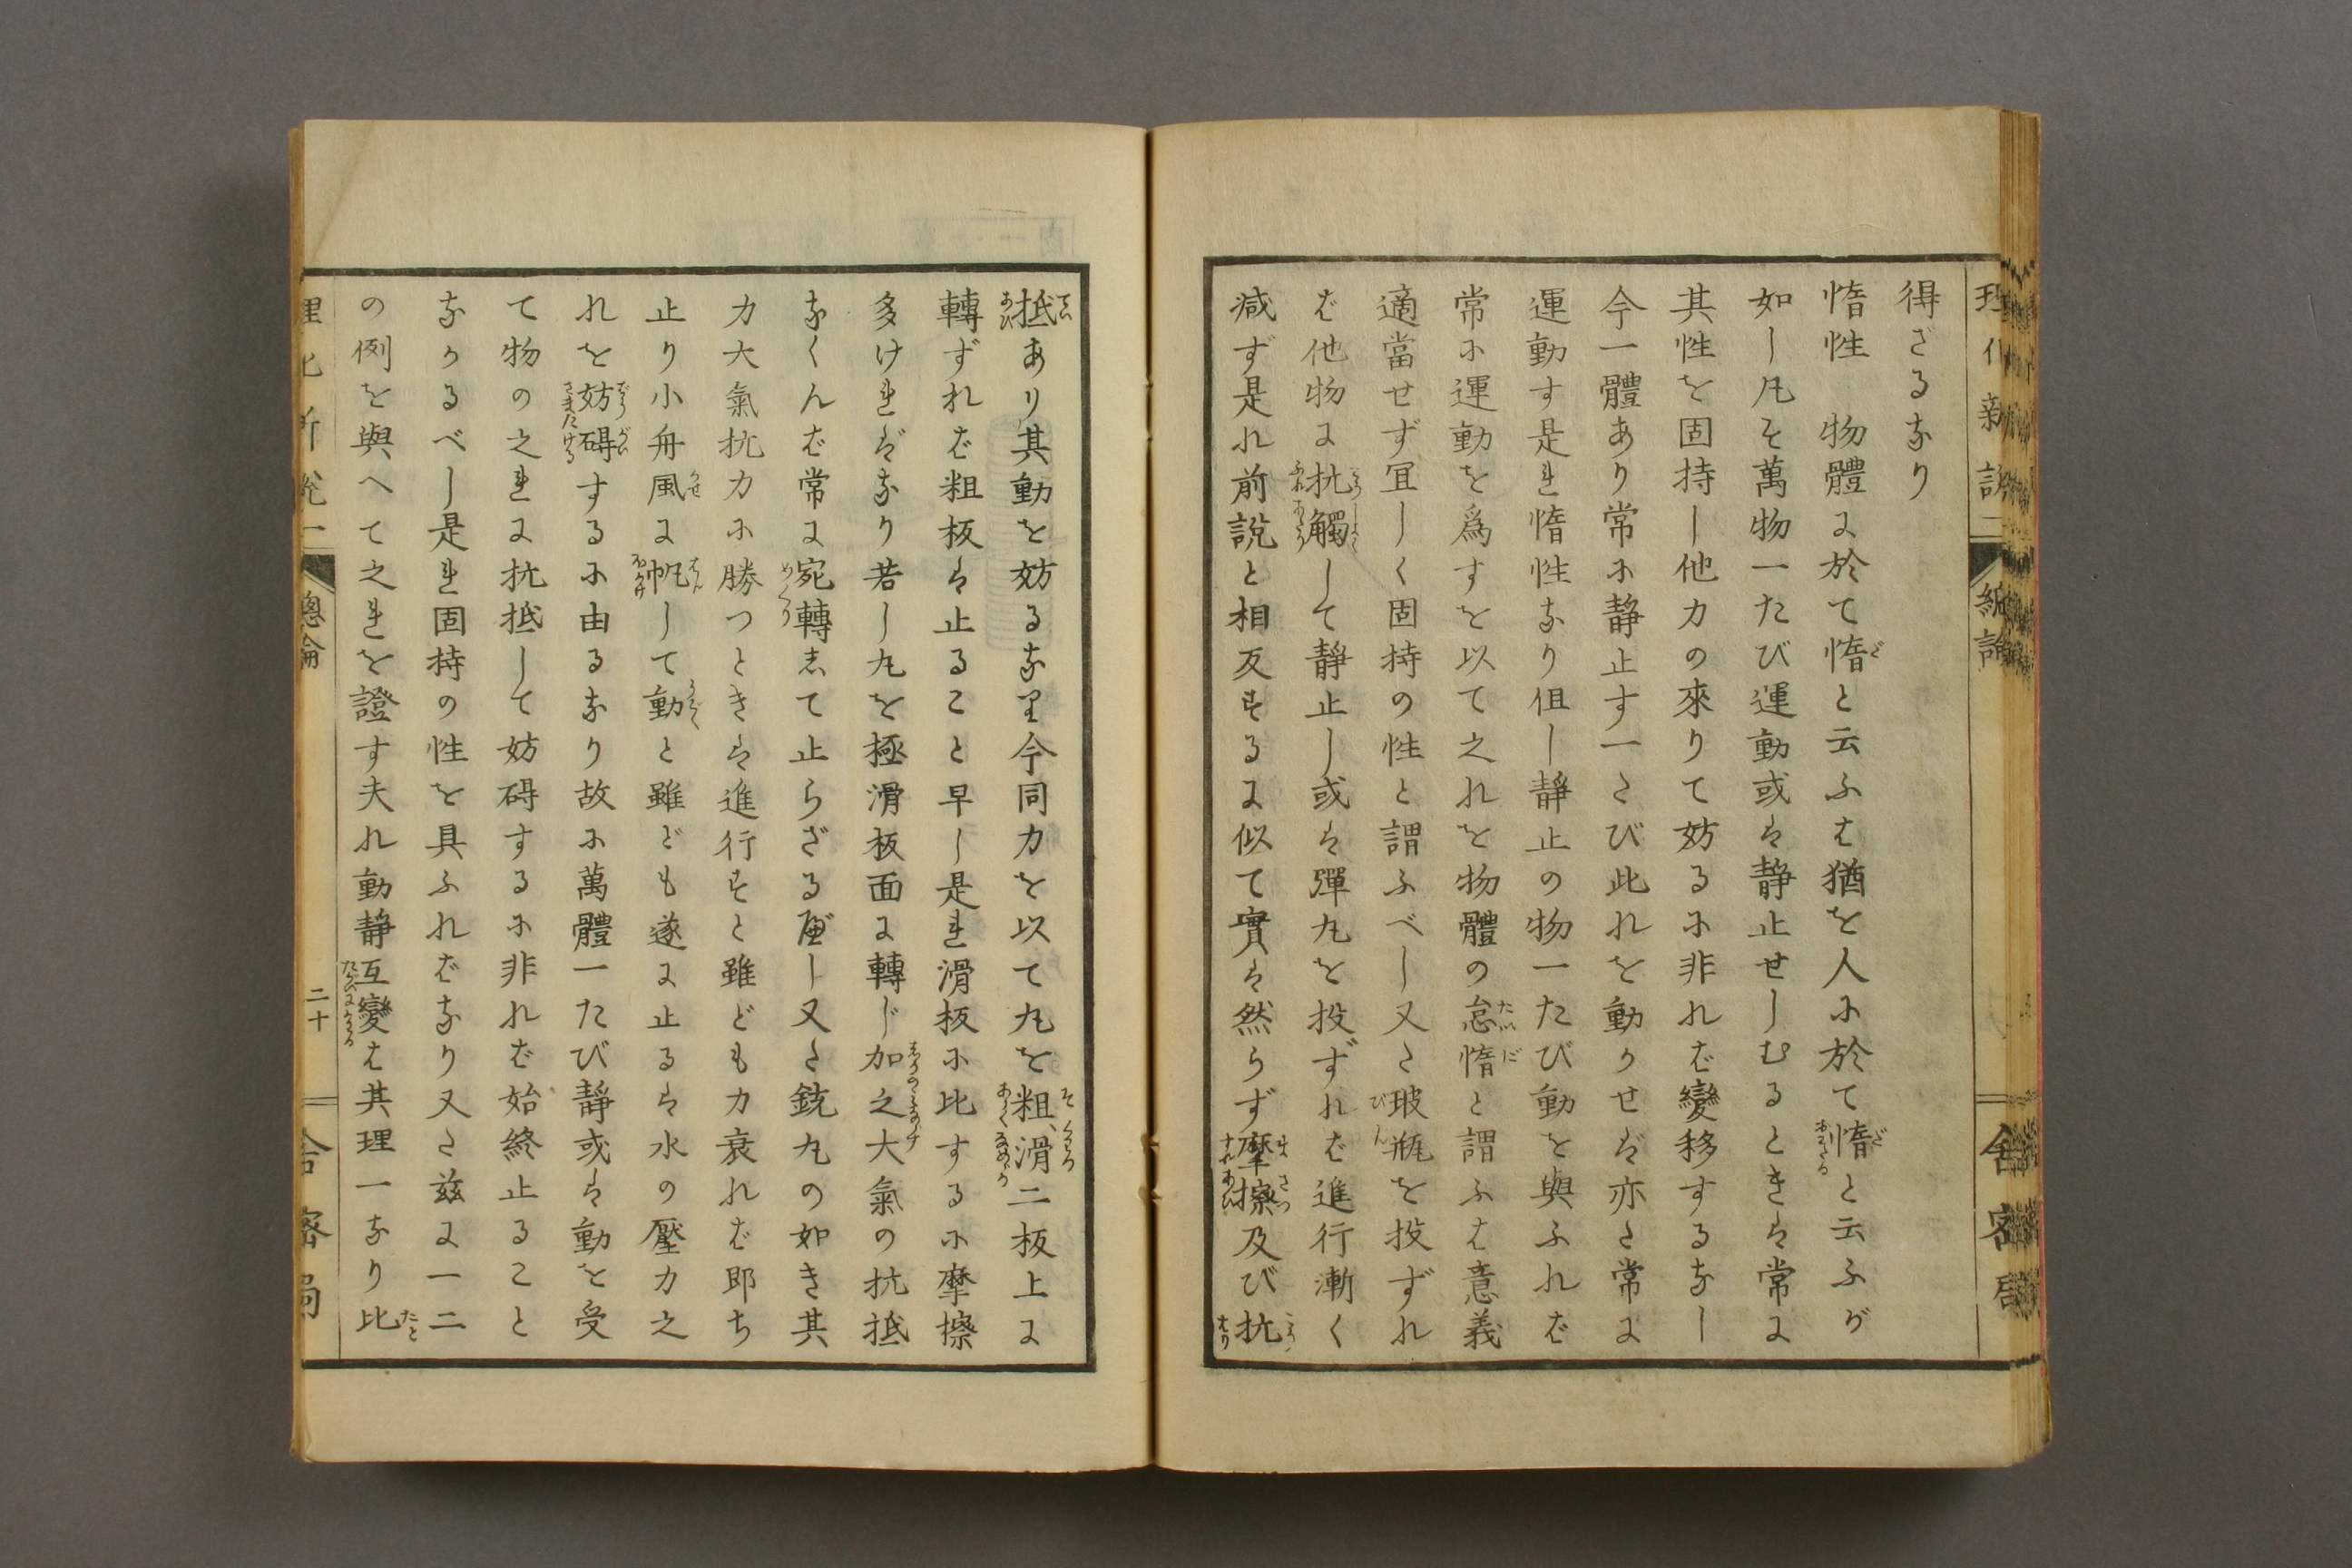 得ざるなり
惰性　物體に於て惰と云ふは猶を人に於て惰と云ふが
如し凡そ萬物一たび運動或は静止せしむるときは常に
其性を固持し他力の來りて妨るに非れば變移するなし
今一體あり常に静止す一たび此れを動かせば亦た常に
運動す是れ惰性なり但し静止の物一たび動を與ふれば
常に運動を為すを以て之れを物體の怠惰と謂ふは意義
適當せず冝しく固持の性と謂ふべし又た玻瓶を投ずれ
ば他物に抗觸して静止し或は彈丸を投ずれば進行漸く
减ず是れ前説と相反するに似て實は然らず摩擦及び抗
抵あり其動を妨るなり今同力を以て丸を粗、滑二板上に
轉ずれば粗板は止ること早し是れ滑板に比するに摩擦
多ければなり若し丸を極滑板面に轉じ加之大氣の抗抵
なくんば常に宛轉して止らざるべし又た銃丸の如き其
力大氣抗力に勝つときは進行すと雖ども力衰れば即ち
止り小舟風に帆して動と雖ども遂に止るは水の壓力之
れを妨碍するに由るなり故に萬體一たび靜或は動を受
て物の之れに抗抵して妨碍するに非れば始終止ること
なかるべし是れ固持の性を具ふればなり又た茲に一二
の例を與へて之れを證す夫れ動静互變は其理一なり比
理化新説一　總論　二十　舎密局